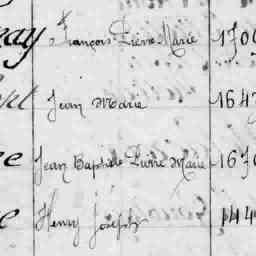 ay François Pierre Marie 170
pt Jean Marie 164
e Jean Baptiste Pierre Marie 167
e Henry Joseph 144